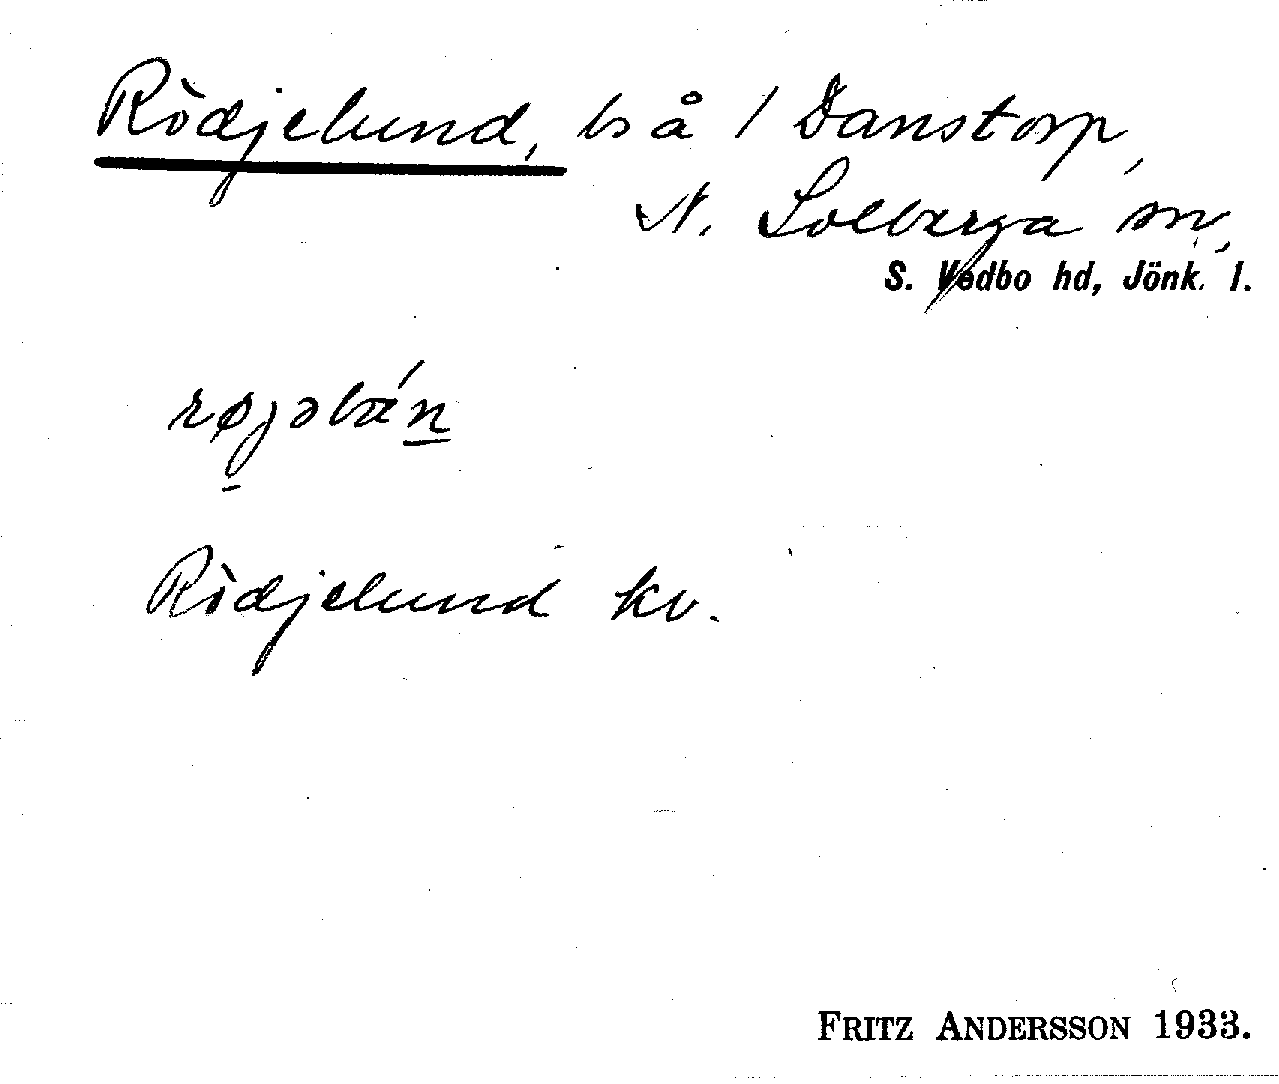 Rödjelund, ls å 1 Danstorp,
N. Solberga sn,
S. Vedbo hd, Jönk. l.
Rödjelund kv.
FRITZ ANDERSSON 1933.